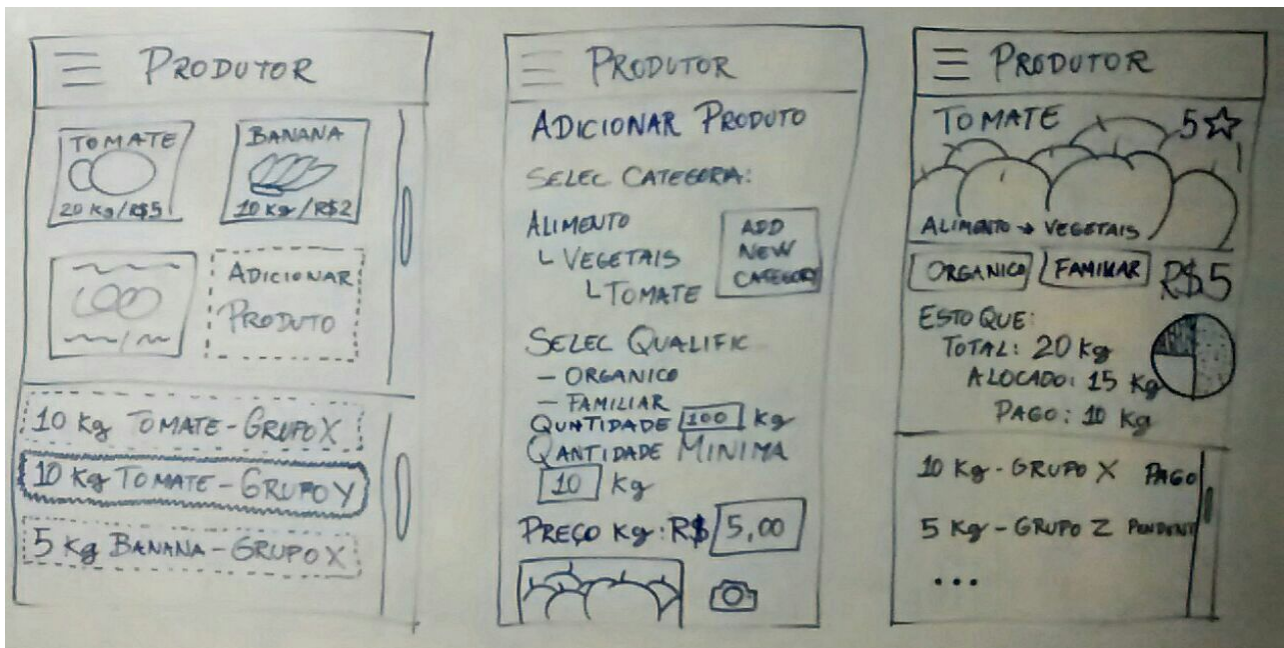 PRODUTOR
TOMATE
20 Kg/R$5
BANANA
10 Kg/R$2
ADICIONAR
PRODUTO
10 Kg TOMATE - GRUPO X
10 Kg TOMATE - GRUPO Y
5 Kg BANANA - GRUPO X
PRODUTOR
ADICIONAR PRODUTO
SELEC CATEGORIA:
ALIMENTO
└ VEGETAIS
└ TOMATE
ADD
NEW
CATEGORY
SELEC QUALIFIC
- ORGANICO
- FAMILIAR
QUNTIDADE 100 Kg
QANTIDADE MINIMA
10 Kg
PREÇO Kg: R$ 5,00
PRODUTOR
TOMATE 5☆
ALIMENTO → VEGETAIS
ORGANICO FAMILIAR R$5
ESTOQUE:
TOTAL: 20 Kg
ALOCADO: 15 Kg
PAGO: 10 Kg
10 Kg - GRUPO X PAGO
5 Kg - GRUPO Z PENDENT
...